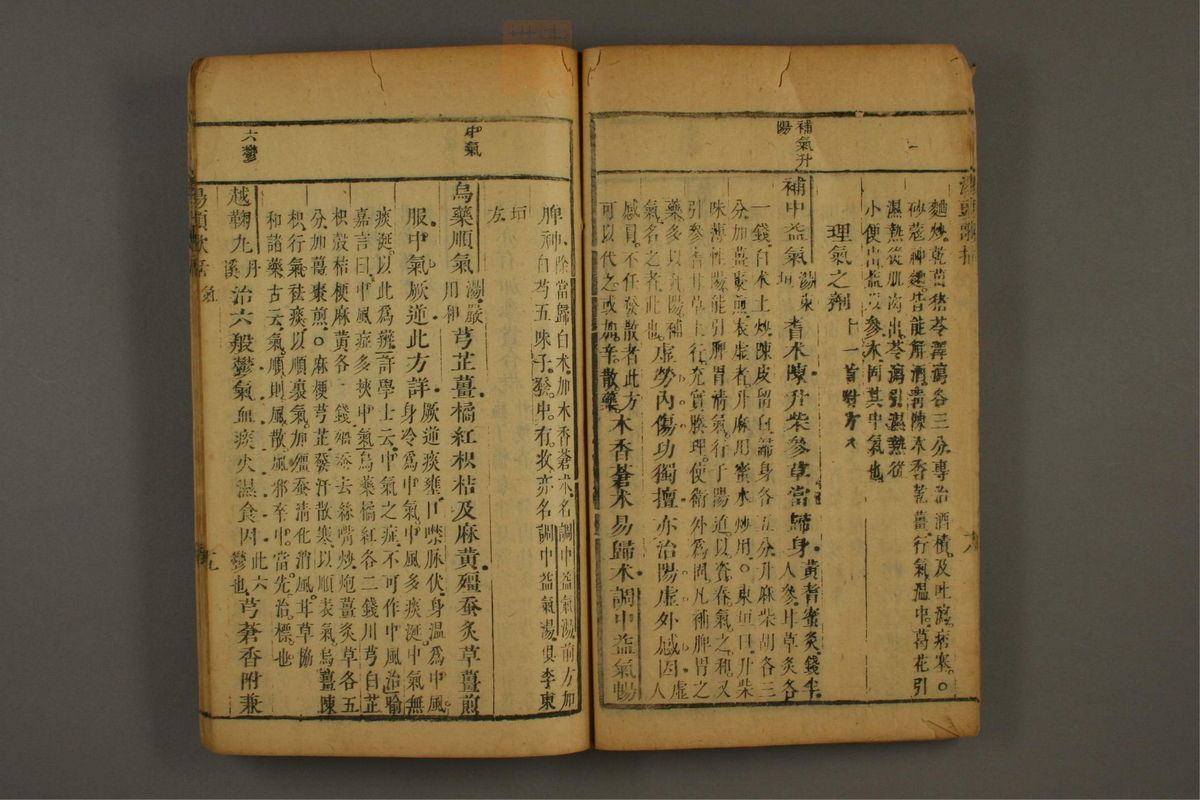 湯頭歌括
六
麯炒乾薑豬苓澤瀉各三分專治酒積及吐瀉痞塞○
砂蔻神麯皆能解酒青陳木香乾薑行氣溫中葛花引
濕熱從肌肉出苓瀉引濕熱從
小便出益以參术固其中氣也
理氣之劑 十一首附方
補氣升
陽
補中益氣湯東垣 耆术陳升柴參草當歸身黃耆蜜炙錢半人參甘草炙各
一錢白术土炒陳皮留白歸身各五分升麻柴胡各三
分加薑棗煎表虛者升麻用蜜水炒用○東垣曰升柴
味薄性陽能引脾胃清氣行于陽道以資春氣之和又
引參耆甘草上行充實腠理使衛外為固凡補脾胃之
藥多以升陽補氣名之者此也虛勞內傷功獨擅亦治陽虛外感因虛人
感冒不任發散者此方可以代之或加辛散藥木香蒼术易歸术調中益氣暢
脾神除當歸白术加木香蒼术名調中益氣湯前方加白芍五味子發中有收亦名調中益氣湯俱李東
垣
方
中氣
烏藥順氣湯嚴用和 芎芷薑橘紅枳桔及麻黃殭蠶炙草薑煎
服中氣厥逆此方詳厥逆痰壅口噤脉伏身溫為中風身冷為中氣中風多痰涎中氣無
痰涎以此為辨許學士云中氣之症不可作中風治喻
嘉言曰中風症多挾中氣烏藥橘紅各二錢川芎白芷
枳殼桔梗麻黃各一錢殭蠶去絲嘴炒炮薑炙草各五
分加薑棗煎○麻梗芎芷發汗散寒以順表氣烏薑陳
枳行氣祛痰以順裏氣加殭蠶清化消風甘草協
和諸藥古云氣順則風散風邪卒中當先治標也
六鬱
越鞠丸丹溪 治六般鬱氣血痰火濕食因此六鬱也芎蒼香附兼
湯頭歌括
氣
九